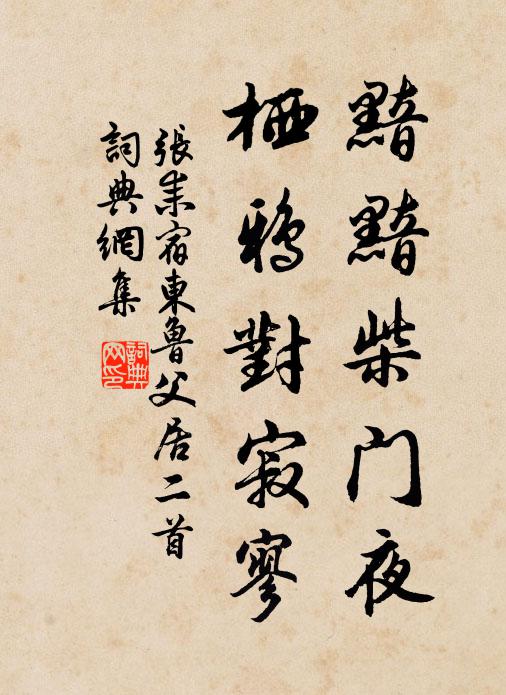 黯黯柴门夜
栖鸦對寂寥
張耒宿東魯父居二首
詞典網集
詞典網印